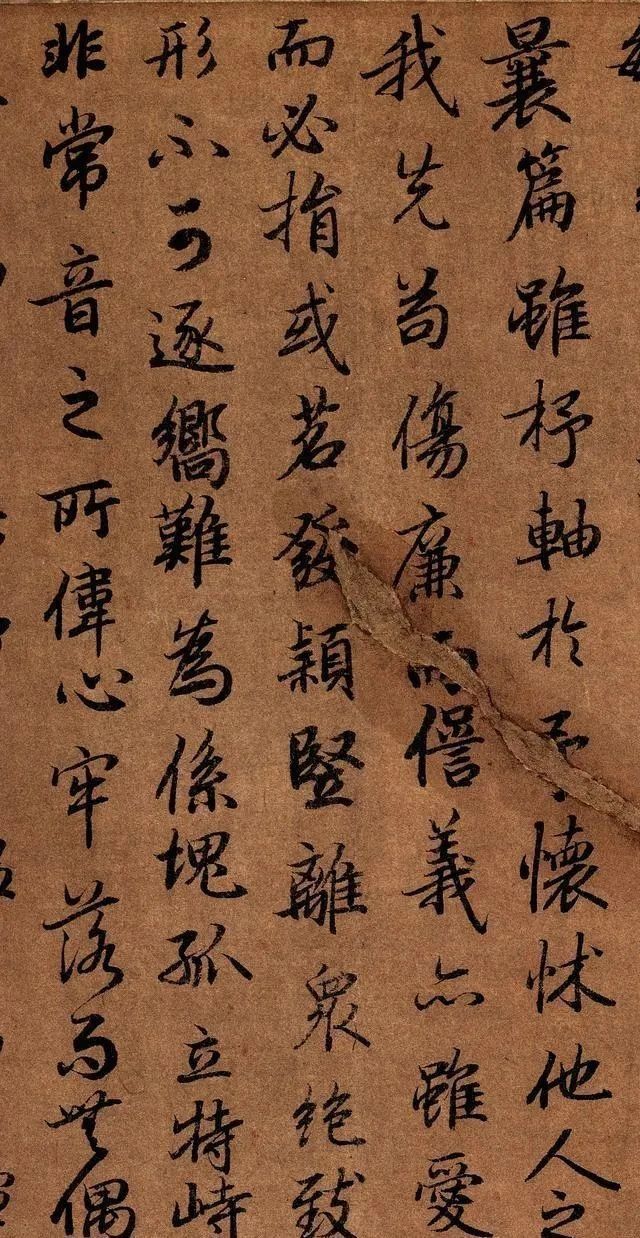 曩篇雖杼軸於予懷怵他人之
我先苟傷廉而愆義亦雖愛
而必捐或茗發穎竪離衆絕致
形不可逐嚮難為係塊孤立特峙
非常音之所偉心牢落而無偶